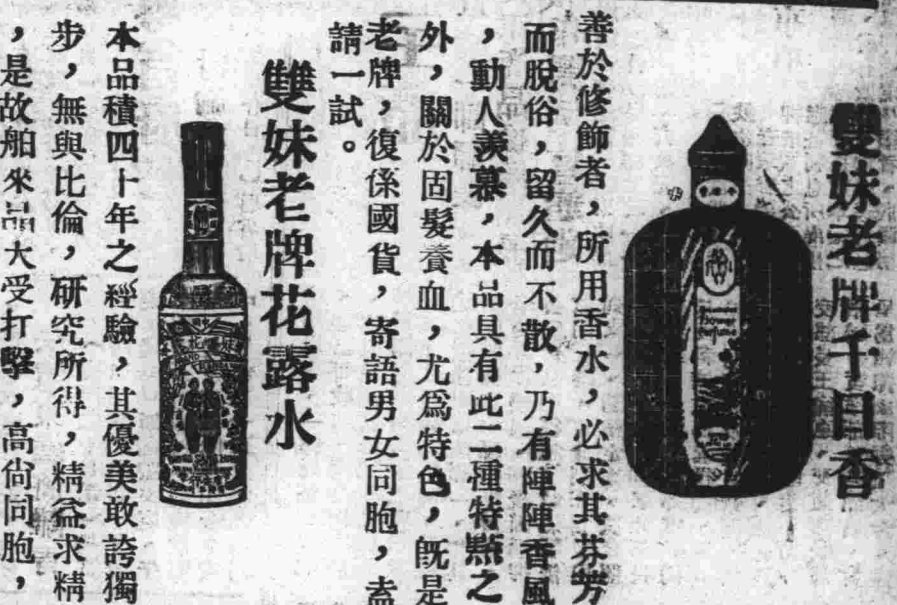 雙妹老牌千日香
善於修飾者，所用香水，必求其芬芳
而脫俗，留久而不散，乃有陣陣香風
，動人羨慕，本品具有此二種特點之
外，關於固髮養血，尤爲特色，旣是
老牌，復係國貨，寄語男女同胞，盍
請一試。
雙妹老牌花露水
本品積四十年之經驗，其優美敢誇獨
步，無與比倫，研究所得，精益求精
，是故舶來品大受打擊，高尙同胞，